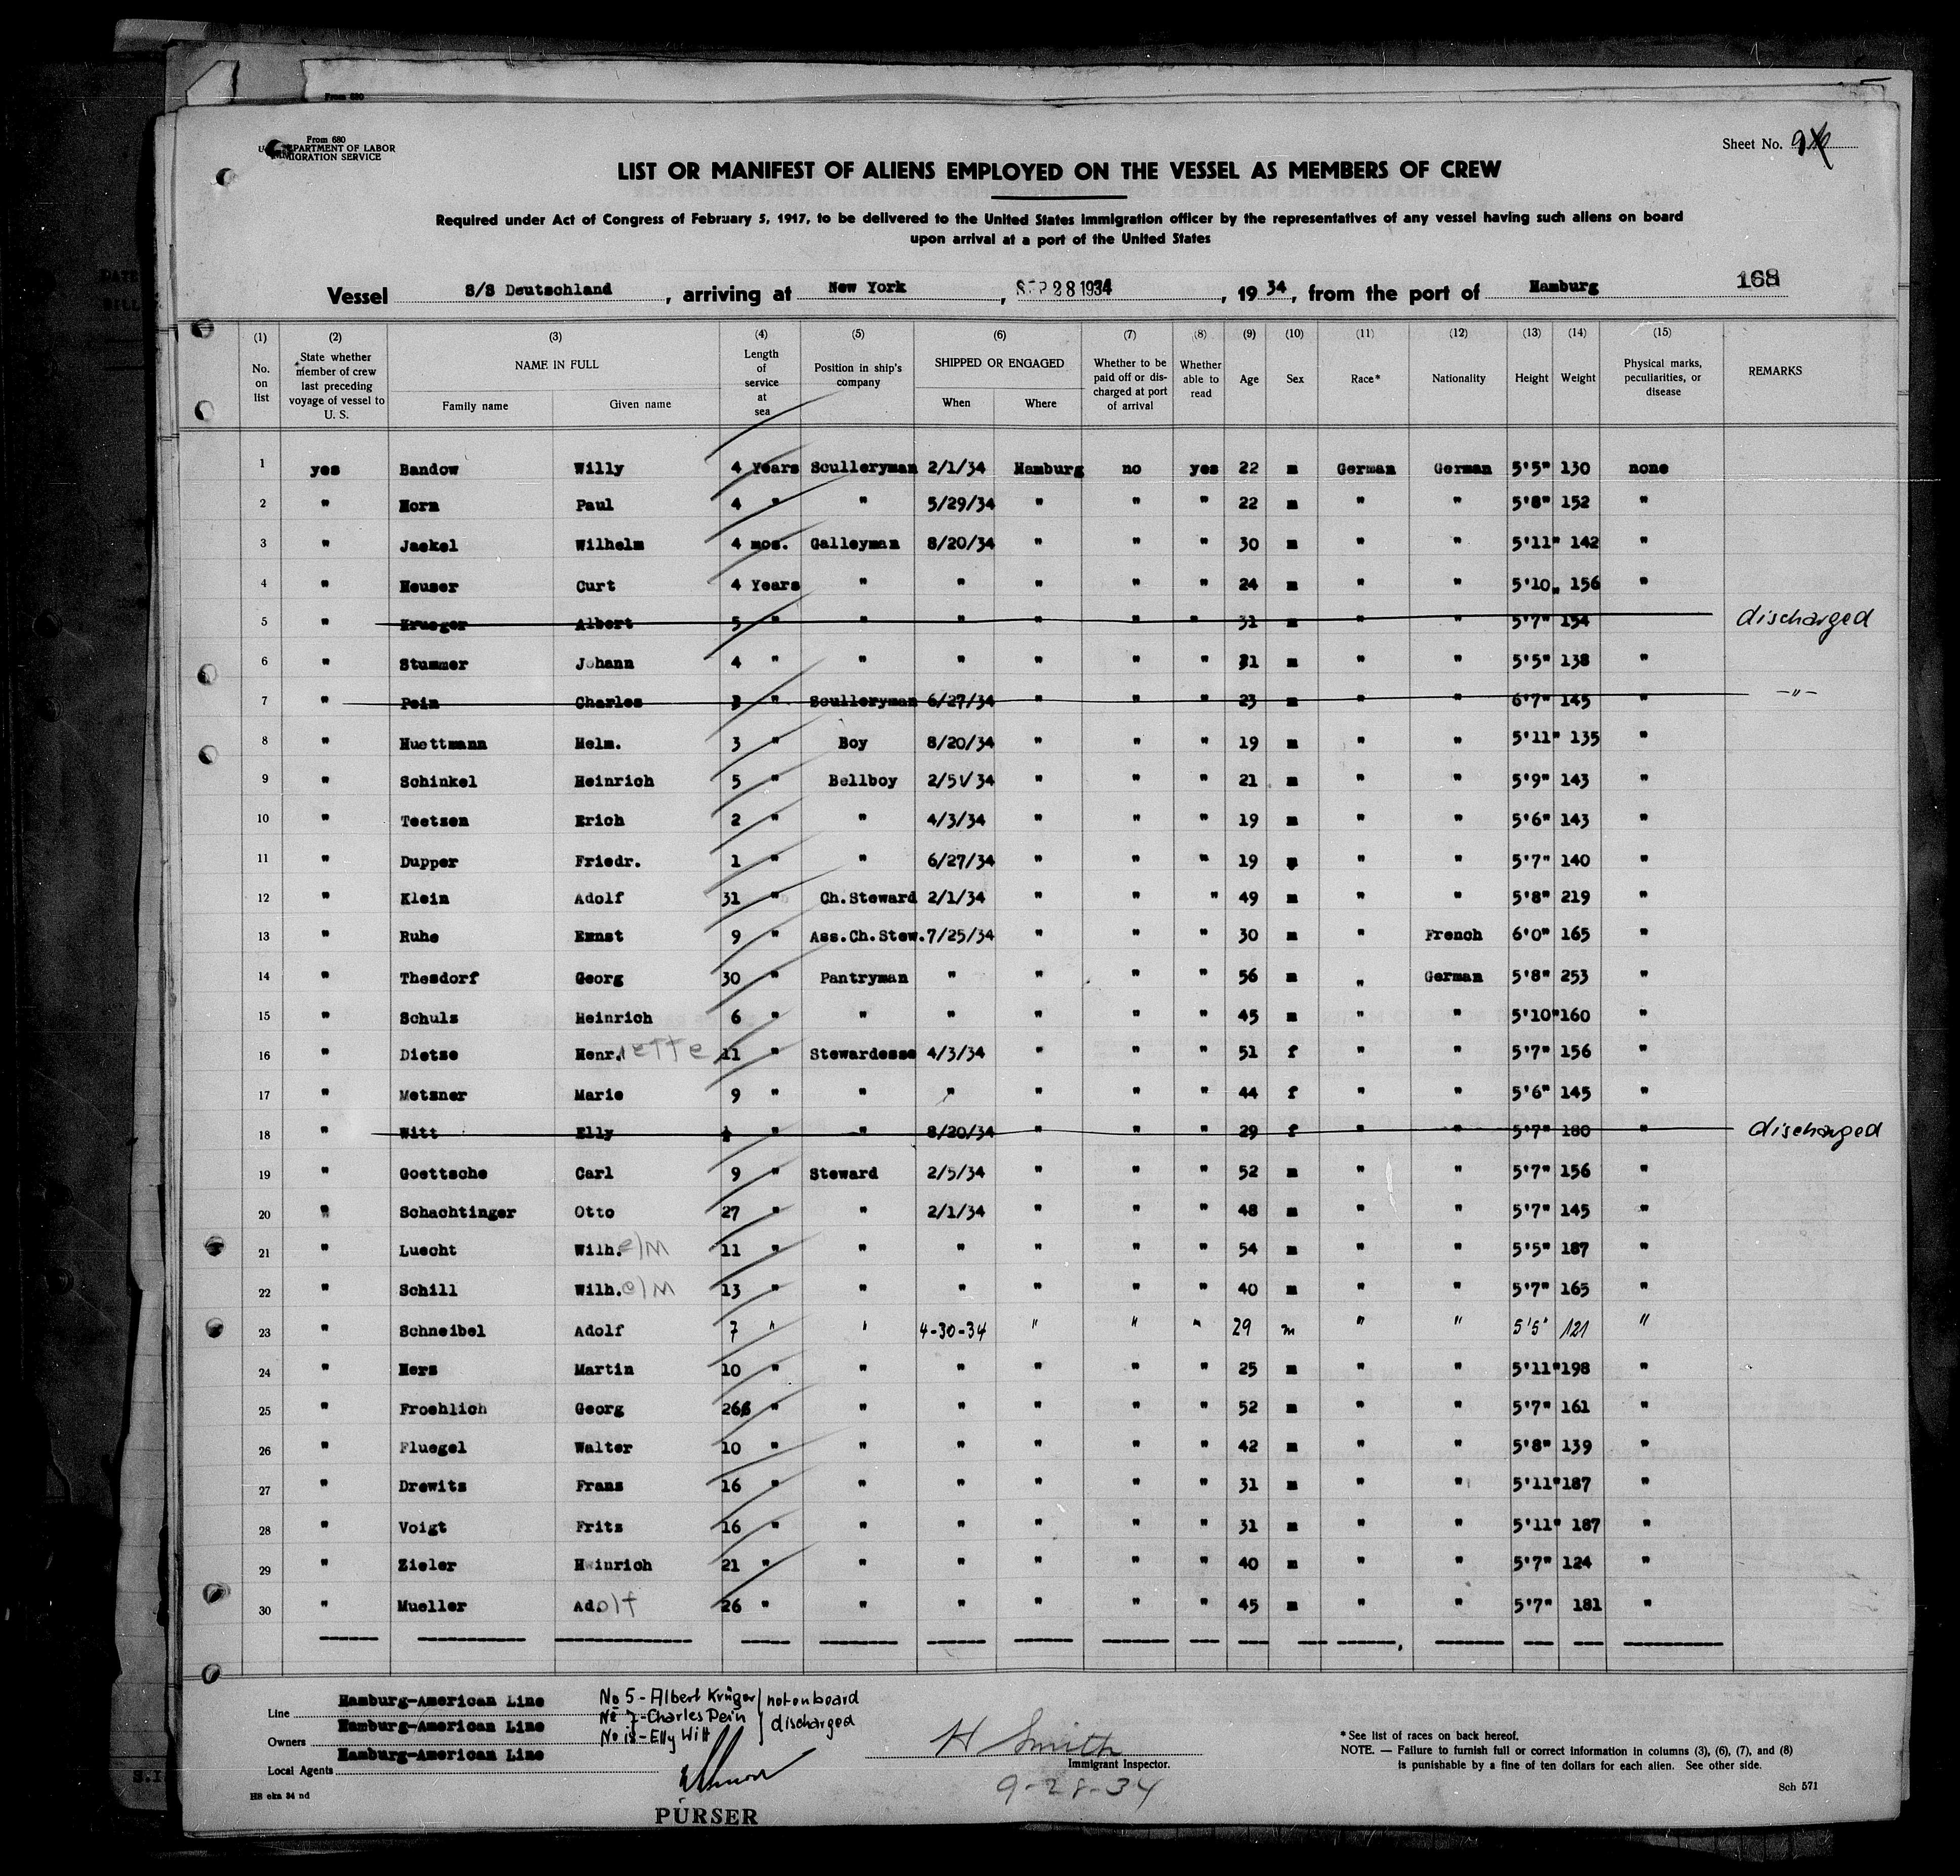 From 680
From 680
DEPARTMENT OF LABOR
IMMIGRATION SERVICE
Sheet No.
LIST OR MANIFEST OF ALIENS EMPLOYED ON THE VESSEL AS MEMBERS OF CREW
Required under Act of Congress of February 5, 1917, to be delivered to the United States Immigration officer by the representatives of any vessel having such aliens on board
upon arrival at a port of the United States
Vessel S/S Deutschland, arriving at New York, SEP 28 1934, 1934, from the port of Hamburg 168
(1) (2) (3) (4) (5) (6) (7) (8) (9) (10) (11) (12) (13) (14) (15)
No. on list State whether *member of crew last preceding voyage of vessel to U. S. NAME IN FULL Family name Given name Length of service at sea Position in ship's company SHIPPED OR ENGAGED When Where Whether to be paid off or discharged at port of arrival Whether able to read Age Sex Race* Nationality Height Weight Physical marks, peculiarities, or disease REMARKS
1 yes Bandow Willy 4 Years Sculleryman 2/1/34 Hamburg no yes 22 m German German 5'5" 130 none
2 " Horn Paul 4 " " 5/29/34 " " " 22 m " " 5'8" 152 "
3 " Jaekel Wilhelm 4 mos. Galleyman 8/20/34 " " " 30 m " " 5'11" 142 "
4 " Heuser Curt 4 Years " " " " " 24 m " " 5'10" 156 "
5 " Krueger Albert 5 " " " " " " 31 m " " 5'7" 154 discharged
6 " Stummer Johann 4 " " " " " " 21 m " " 5'5" 138 "
7 " Pein Charles " Sculleryman 6/27/34 " " " 23 m " " 6'7" 145 " -"-
8 " Huettmann Helm. 3 " Boy 8/20/34 " " " 19 m " " 5'11" 135 "
9 " Schinkel Heinrich 5 " Bellboy 2/5/34 " " " 21 m " " 5'9" 143 "
10 " Teetzen Erich 2 " " 4/3/34 " " " 19 m " " 5'6" 143 "
11 " Dupper Friedr. 1 " " 6/27/34 " " " 19 m " " 5'7" 140 "
12 " Klein Adolf 31 " Ch.Steward 2/1/34 " " " 49 m " " 5'8" 219 "
13 " Ruhe Ernst 9 " Ass.Ch.Stew. 7/25/34 " " " 30 m " French 6'0" 165 "
14 " Thesdorf Georg 30 " Pantryman " " " " 56 m " German 5'8" 253 "
15 " Schulz Heinrich 6 " " " " " " 45 m " " 5'10" 160 "
16 " Dietze Henriette 11 " Stewardesse 4/3/34 " " " 51 f " " 5'7" 156 "
17 " Metzner Marie 9 " " " " " " 44 f " " 5'6" 145 "
18 " Witt Elly " " 8/20/34 " " " 29 f " " 5'7" 180 " discharged
19 " Goettsche Carl 9 " Steward 2/5/34 " " " 52 m " " 5'7" 156 "
20 " Schachtinger Otto 27 " " 2/1/34 " " " 48 m " " 5'7" 145 "
21 " Luecht Wilh.elm 11 " " " " " " 54 m " " 5'5" 187 "
22 " Schill Wilh.elm 13 " " " " " " 40 m " " 5'7" 165 "
23 " Schneibel Adolf 7 " " 4-30-34 " " " 29 m " " 5'5" 121 "
24 " Herz Martin 10 " " " " " " 25 m " " 5'11" 198 "
25 " Froehlich Georg 26 " " " " " " 52 m " " 5'7" 161 "
26 " Fluegel Walter 10 " " " " " " 42 m " " 5'8" 139 "
27 " Drewitz Franz 16 " " " " " " 31 m " " 5'11" 187 "
28 " Voigt Fritz 16 " " " " " " 31 m " " 5'11" 187 "
29 " Zieler Heinrich 21 " " " " " " 40 m " " 5'7" 124 "
30 " Mueller Adolf 26 " " " " " " 45 m " " 5'7" 181 "
Line Hamburg-American Line
Owners Hamburg-American Line
Local Agents Hamburg-American Line
No 5 - Albert Krüger } not on board
No 7 - Charles Pein } discharged
No 18 - Elly Witt
PURSER
H Smith
Immigrant Inspector.
9-28-34
* See list of races on back hereof.
NOTE. — Failure to furnish full or correct information in columns (3), (6), (7), and (8)
is punishable by a fine of ten dollars for each alien. See other side.
HB eka 34 nd
Sch 571